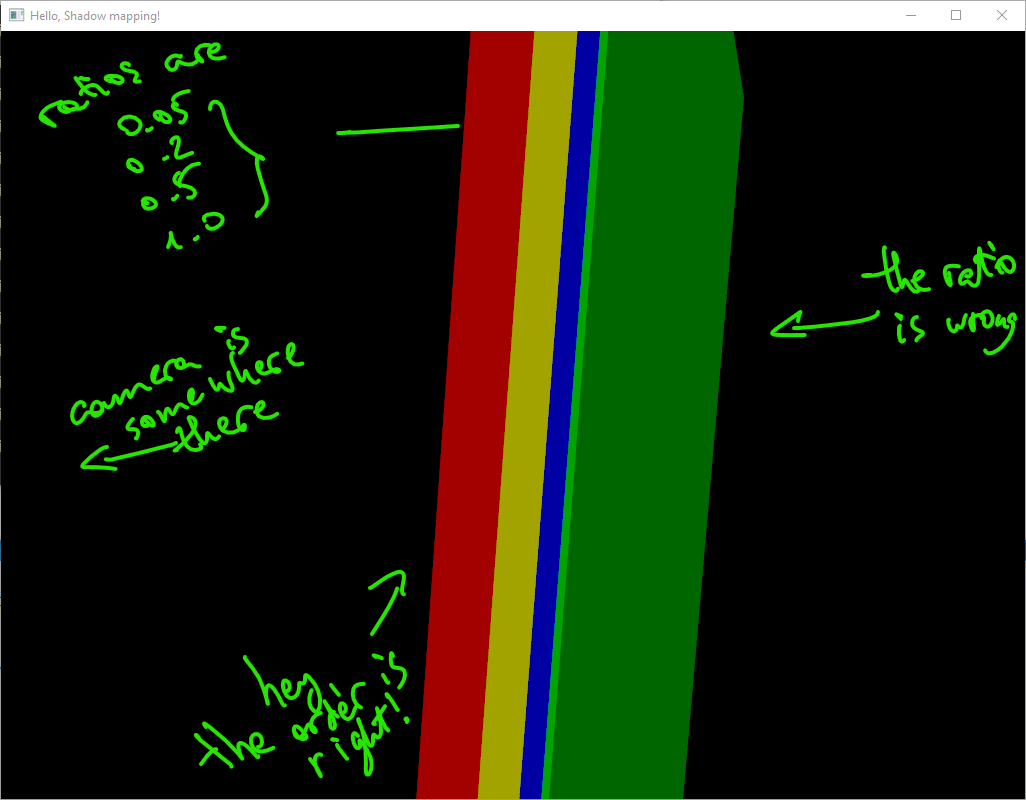 Hello, Shadow mapping!
ratios are
0.05
0.2
0.5
1.0
the ratio
is wrong
camera is
somewhere
there
hey
the order is
right!